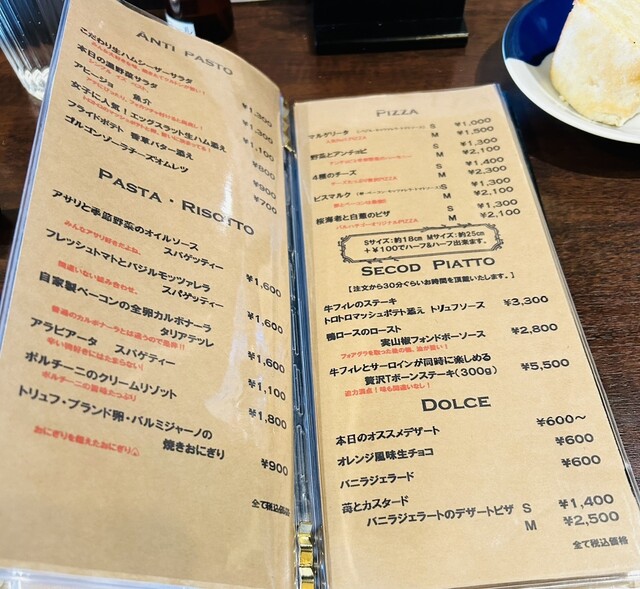 ANTI PASTO
こだわり生ハムシーザーサラダ ¥1,300
本日の温野菜サラダ ¥1,300
アヒージョ 魚介 ¥1,100
女子に人気！エッグスラット生ハム添え ¥800
フライドポテト 香草バター添え ¥900
ゴルゴンゾーラチーズオムレツ ¥700
PASTA・RISOTTO
アサリと季節野菜のオイルソース
スパゲッティー ¥1,600
みんなアサリ好きだよね。
フレッシュトマトとバジルモッツァレラ
スパゲティー ¥1,600
間違いない組み合わせ。
自家製ベーコンの全卵カルボナーラ
タリアテッレ ¥1,600
普通のカルボナーラとは違うので是非!!
アラビアータ スパゲティー ¥1,100
辛い物好きにはたまらない！
ポルチーニのクリームリゾット ¥1,800
ポルチーニの旨味たっぷり
トリュフ・ブランド卵・パルミジャーノの
焼きおにぎり ¥900
おにぎりを超えたおにぎり
全て税込価格
PIZZA
マルゲリータ S ¥1,000
M ¥1,500
人気No.1 PIZZA
野菜とアンチョビ S ¥1,300
M ¥2,100
4種のチーズ S ¥1,400
M ¥2,300
チーズたっぷり贅沢PIZZA
ビスマルク S ¥1,300
M ¥2,100
桜海老と白葱のピザ S ¥1,300
M ¥2,100
バルハナイーオリジナルPIZZA
Sサイズ：約18㎝ Mサイズ：約25㎝
＋¥100でハーフ&ハーフ出来ます。
SECOD PIATTO
【注文から30分ぐらいお時間を頂戴いたします。】
牛フィレのステーキ
トロトロマッシュポテト添え トリュフソース ¥3,300
鴨ロースのロースト
実山椒フォンドボーソース ¥2,800
フォアグラを取った後の鴨、油が甘い！
牛フィレとサーロインが同時に楽しめる
贅沢Tボーンステーキ(300g) ¥5,500
迫力満点！味も間違いなし！
DOLCE
本日のオススメデザート ¥600～
オレンジ風味生チョコ ¥600
バニラジェラード ¥600
苺とカスタード
バニラジェラートのデザートピザ S ¥1,400
M ¥2,500
全て税込価格